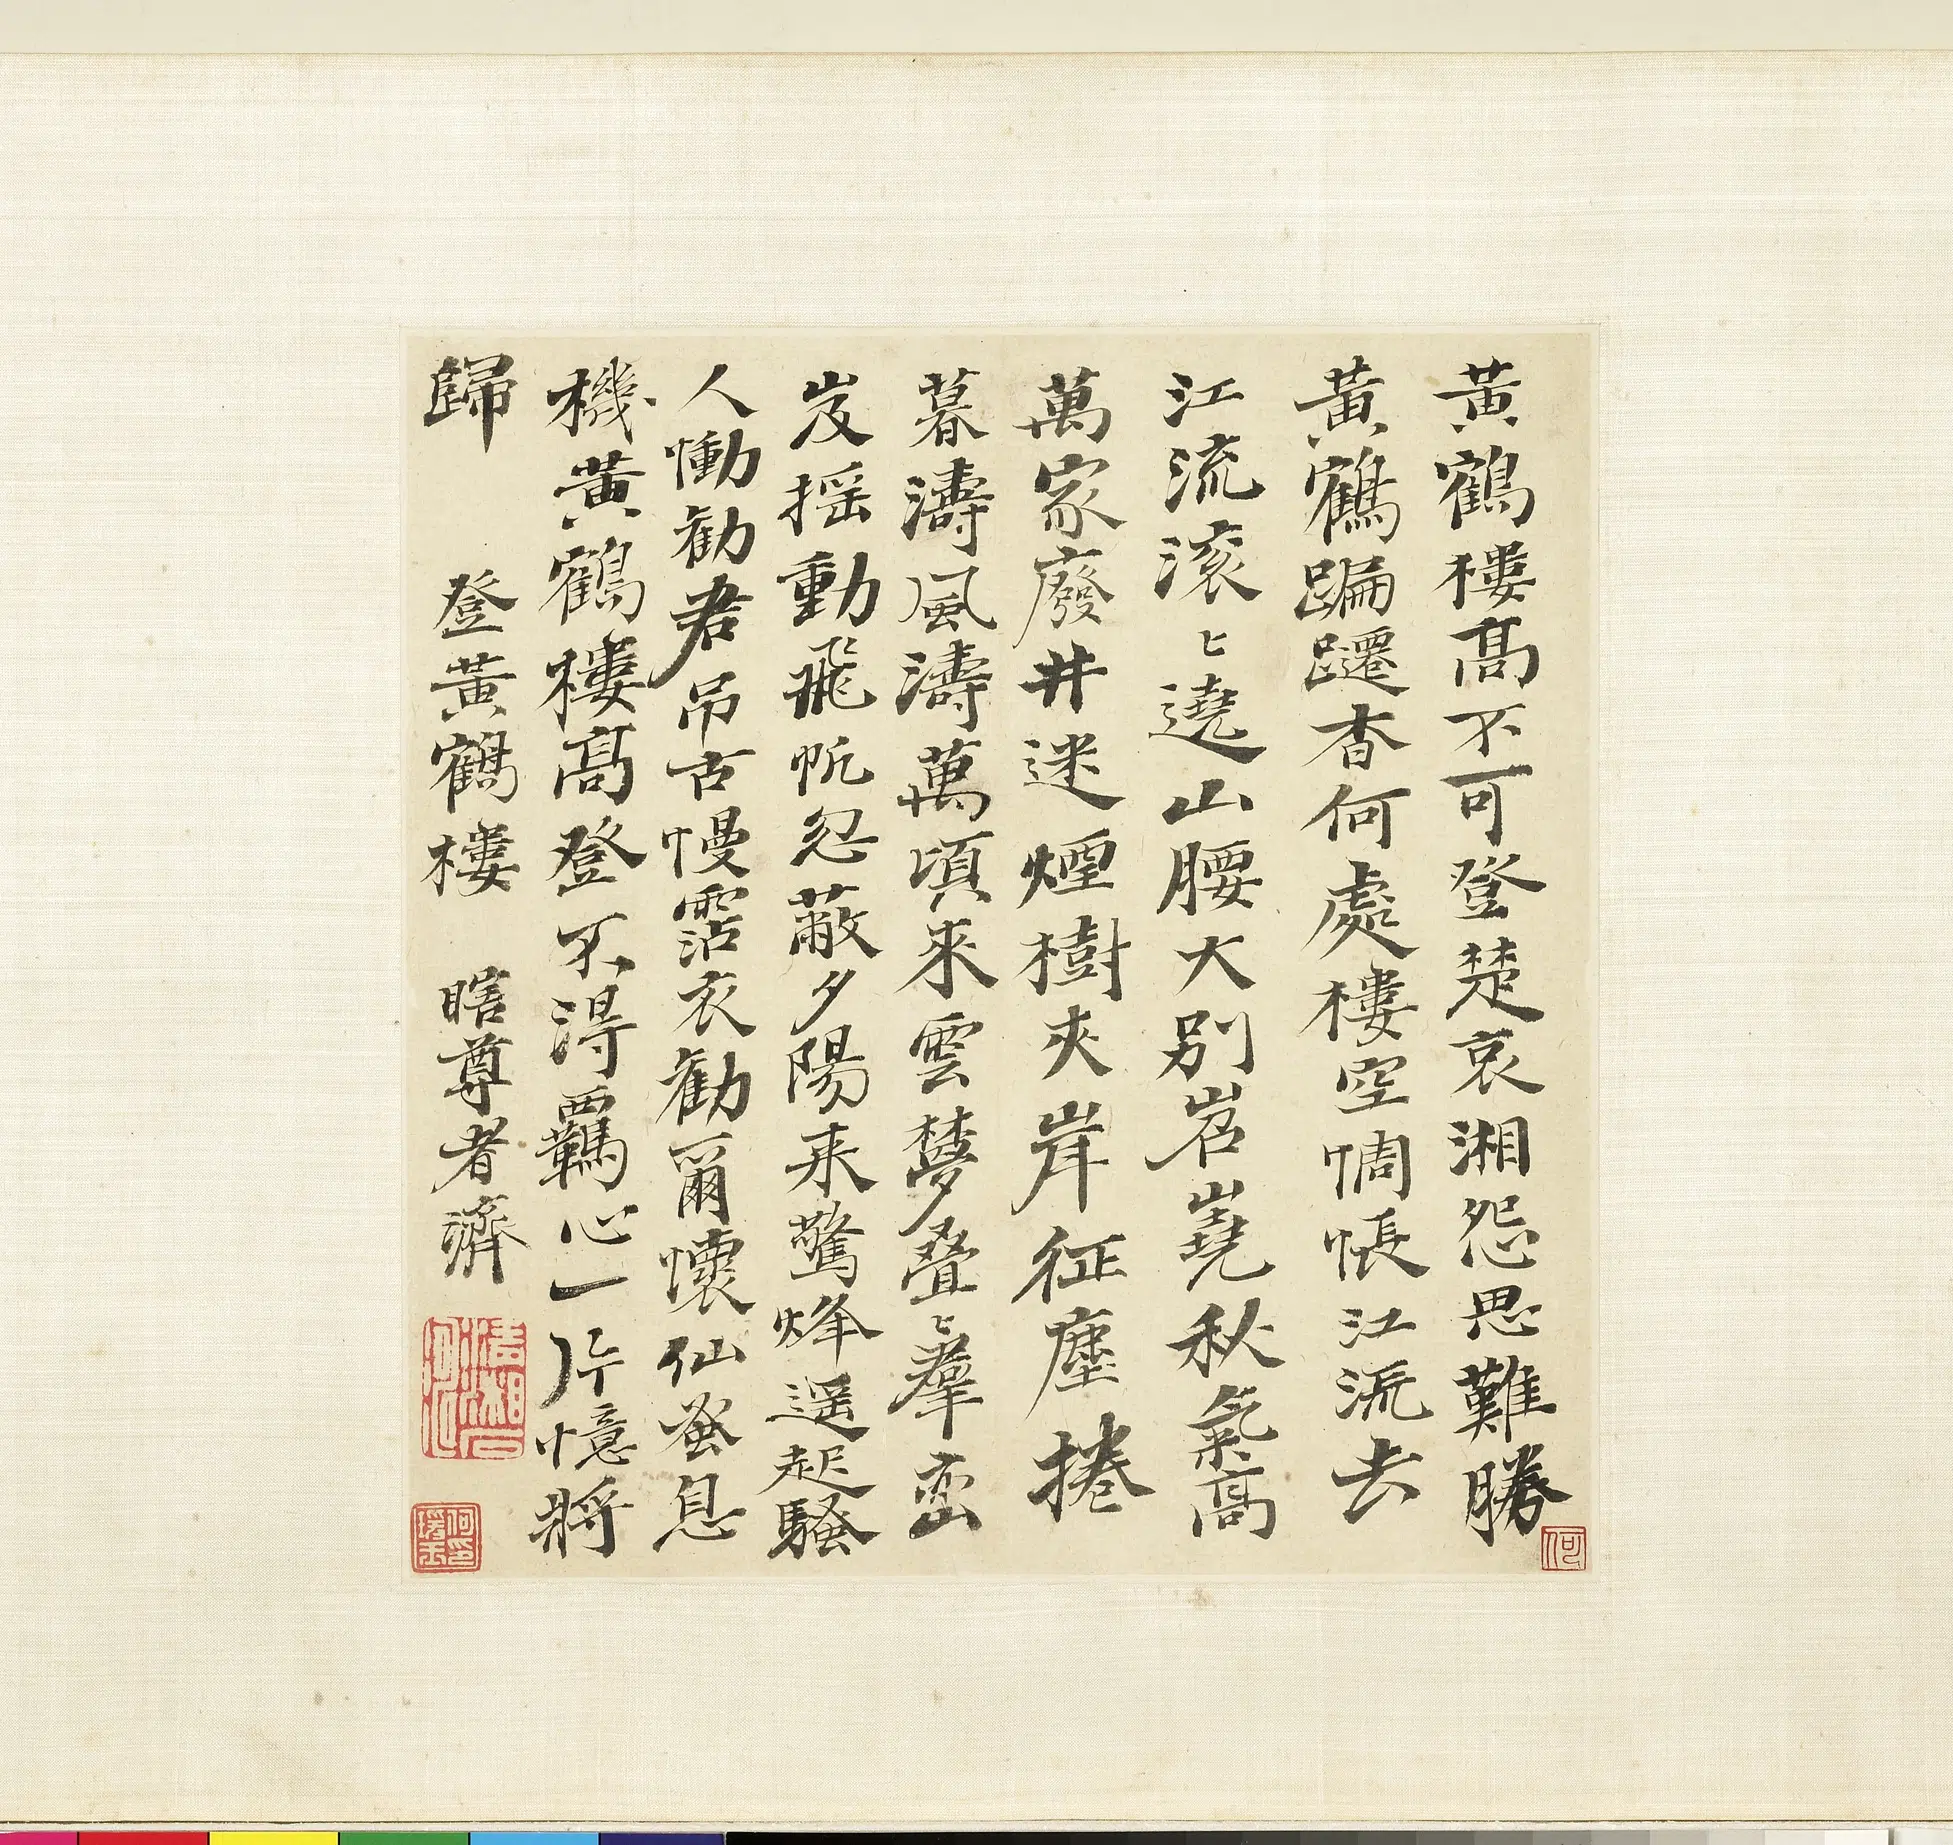 黃鶴樓高不可登楚哀湘怨思難勝
黃鶴蹁躚杳何處樓空惆悵江流去
江流滾〻遶山腰大別岧嶤秋氣高
萬家廢井迷煙樹夾岸征塵捲
暮濤風濤萬頃來雲夢疊〻羣巒
岌搖動飛帆忽蔽夕陽來驚烽遥起騷
人慟勸君吊古慢霑衣勸爾懷仙蚤息
機黃鶴樓高登不得羈心一片憶將
歸
登黃鶴樓
瞎尊者濟
清湘石
何瑗玉印
何